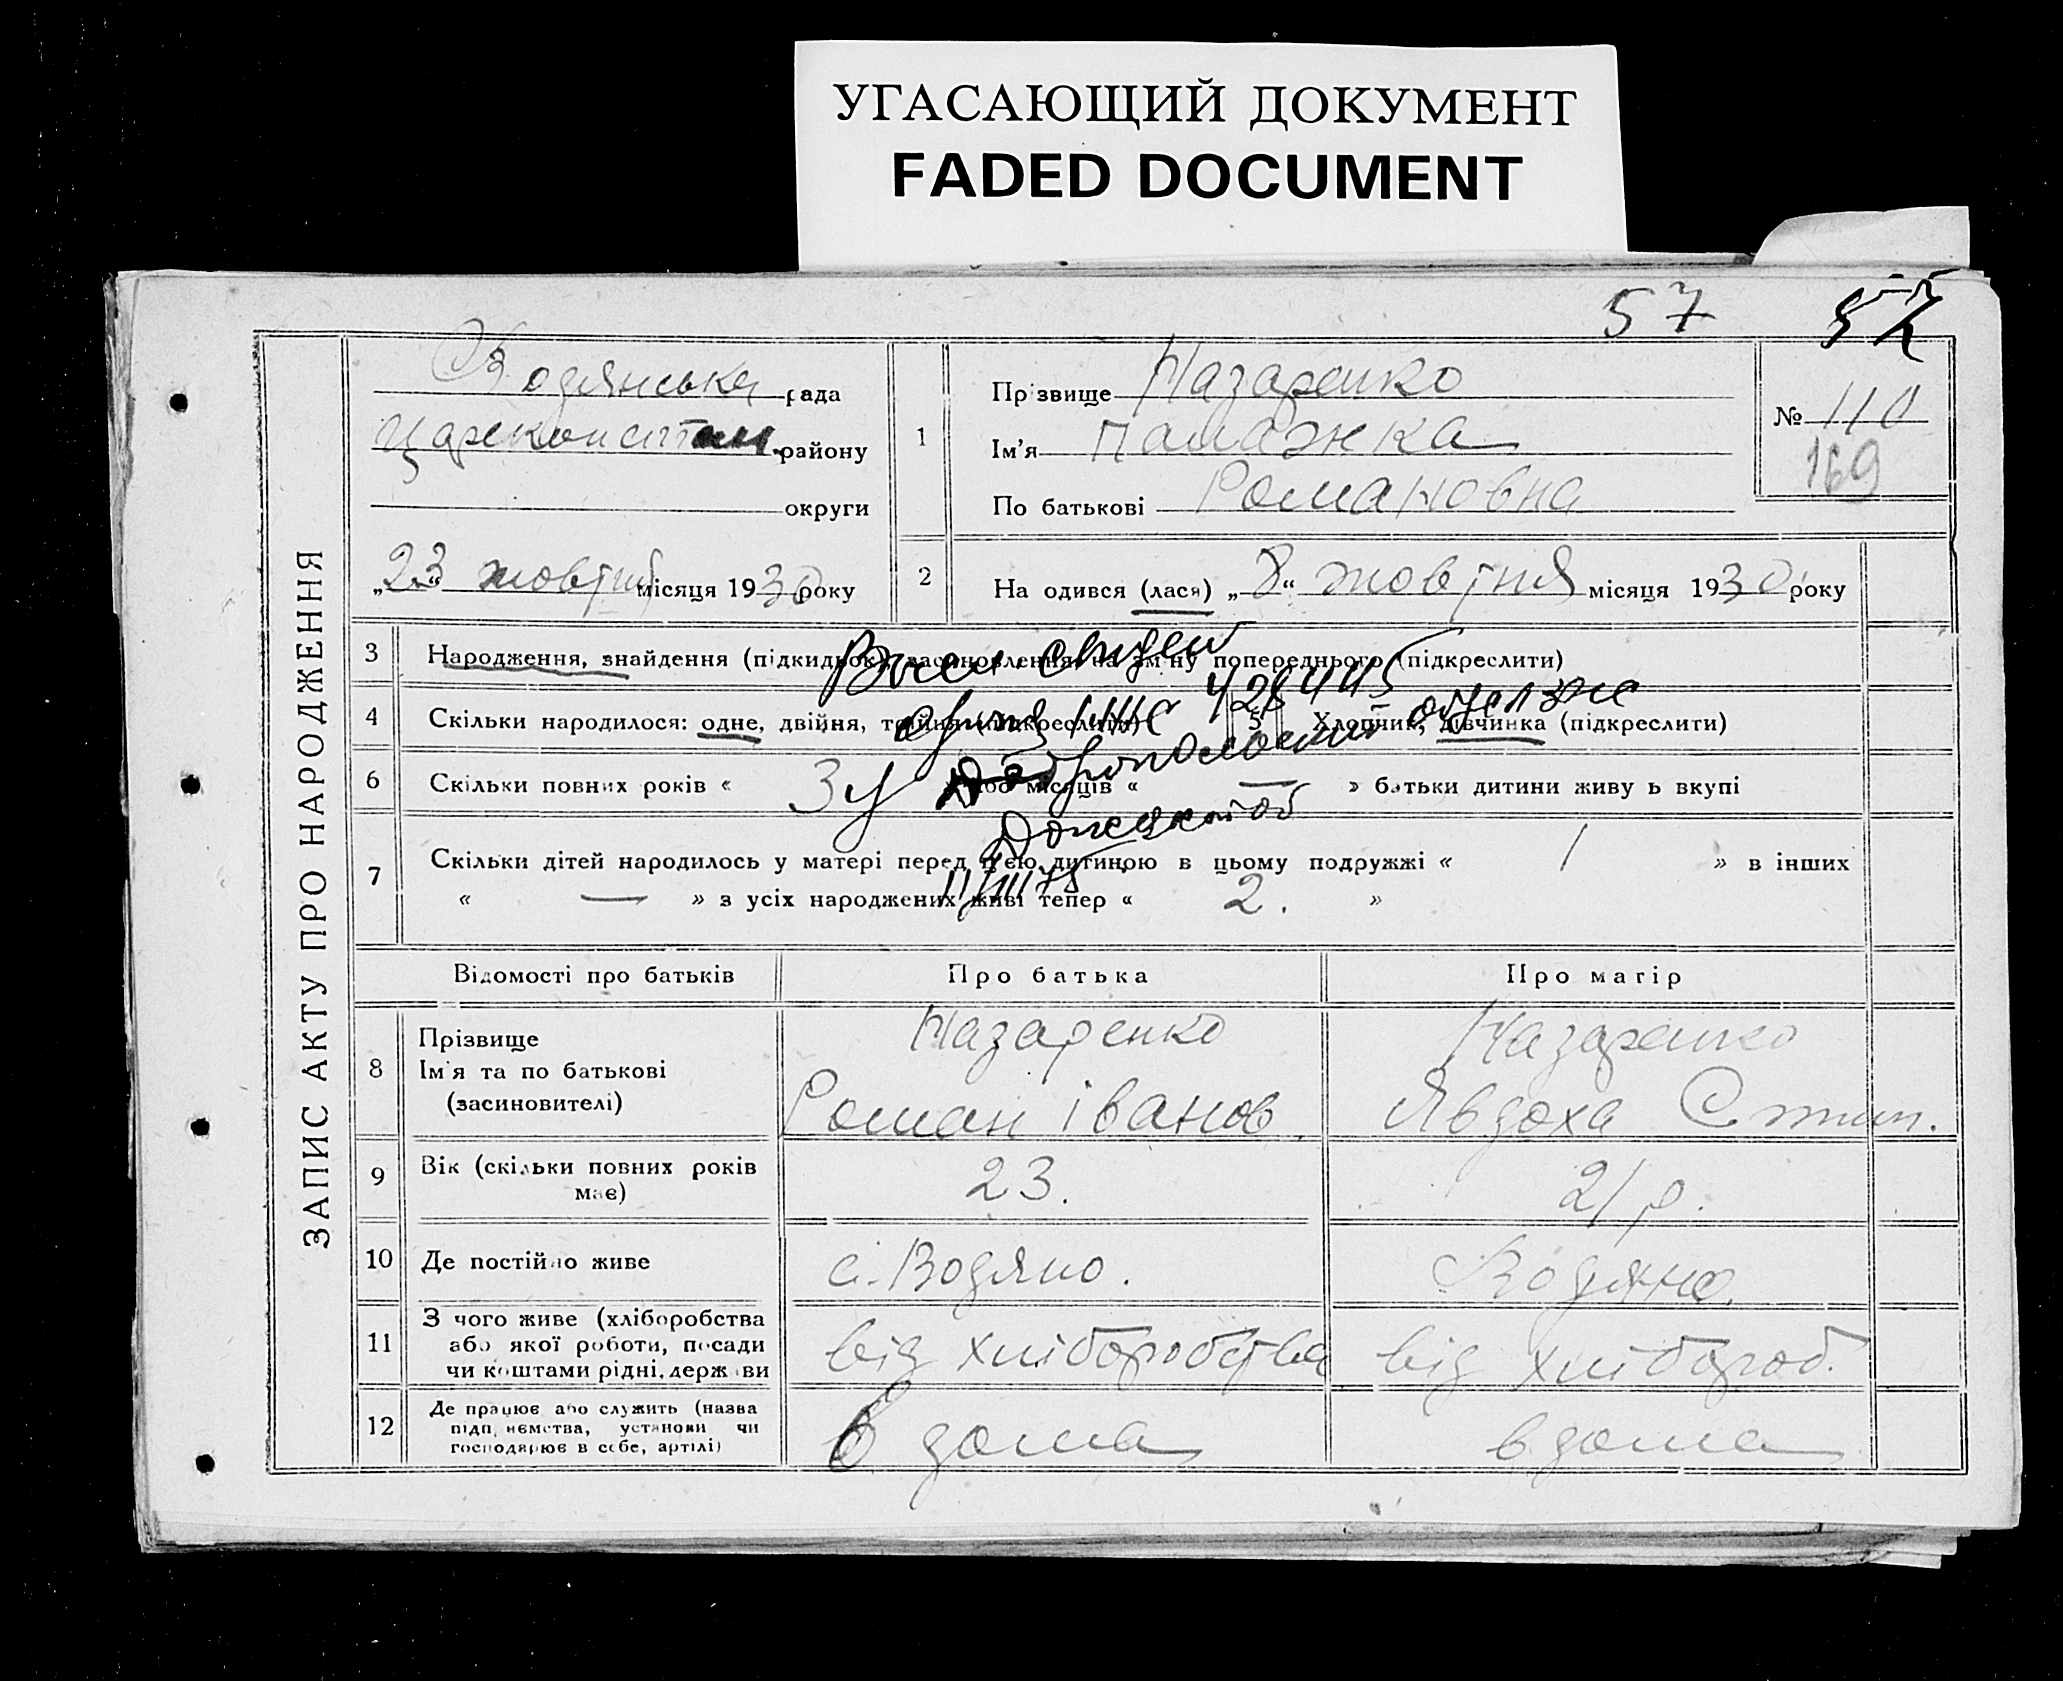 УГАСАЮЩИЙ ДОКУМЕНТ
FADED DOCUMENT
57
ЗАПИС АКТУ ПРО НАРОДЖЕННЯ
Водянська рада
района
округи
„23“ жовтня місяця 1930 року
1
Прізвище Назаренко
Ім'я Палажка
По батькові Романовна
№ 110
169
2
На одився (лася) „8“ жовтня місяця 1930 року
3 Народження, знайдення (підкидьок), засиновлення на зміну попереднього (підкреслити)
4 Скільки народилося: одне, двійня, трійня (підкреслити) 5 Хлопчик, дівчинка (підкреслити)
6 Скільки повних років « 3 » або місяців « — » батьки дитини живу ь вкупі
7 Скільки дітей народилось у матері перед цією дитиною в цьому подружжі « 1 » в інших
« — » з усіх народжених живі тепер « 2. »
428445
Донецкой об
Відомості про батьків Про батька Про матір
8 Прізвище Ім'я та по батькові (засиновителі)
Назаренко Роман Іванов.
Назаренко Явдоха
9 Вік (скільки повних років має) 23. 21 р.
10 Де постійно живе с. Водяно. Водяно.
11 З чого живе (хліборобства або якої роботи, посади чи коштами рідні, держави
від хліборобства від хлібороб.
12 Де працює або служить (назва підприємства, установи чи господарює в себе, артілі)
в дома в дома